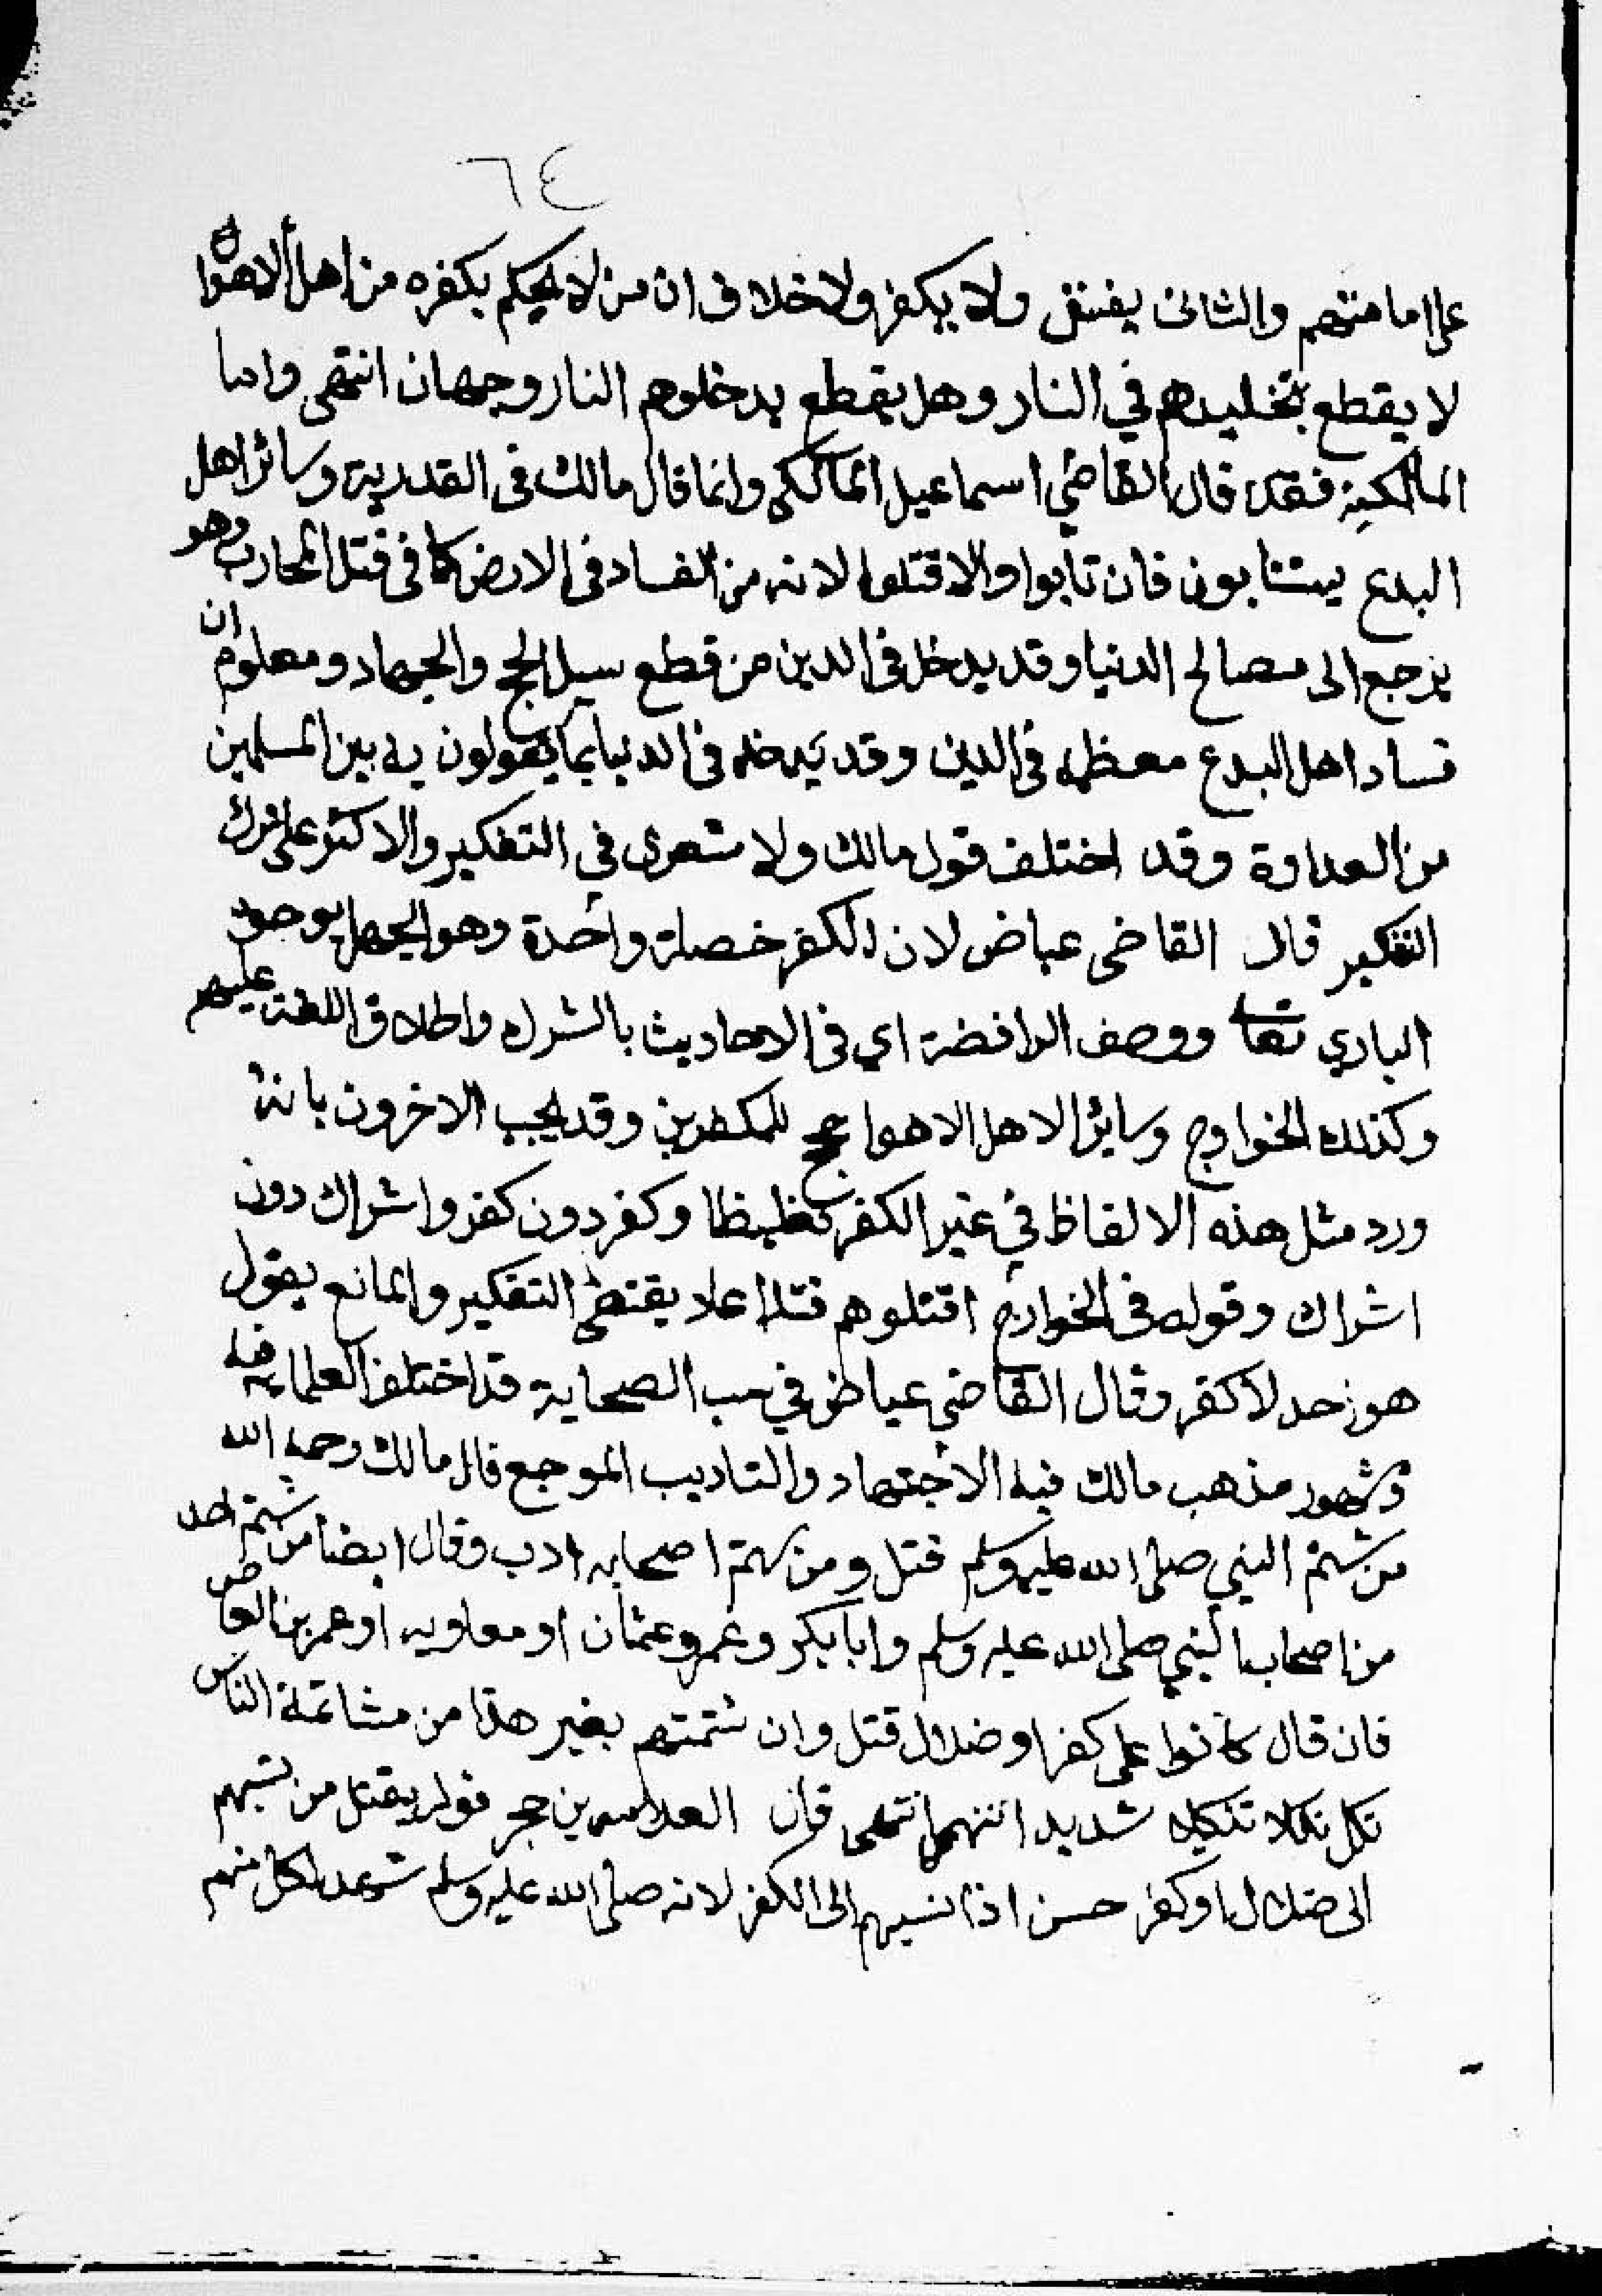 ٦٤
على امامتهم والثانى يفسق ولا يكفر ولا خلاف ان من لا يحكم بكفره من اهل الاهوا
لا يقطع بتخليدهم في النار وهل يقطع بدخلوهم النار وجهان انتهى واما
المالكية فقد قال القاضي اسماعيل المالكى وانما قال مالك فى القدرية وسائر اهل
البدع يستتابون فان تابوا والا قتلوا لانه من الفساد فى الارض كما فى قتل المحارب وهو
يرجع الى مصالح الدنيا وقد يدخل فى الدين من قطع سبيل الحج والجهاد ومعلوم ان
فساد اهل البدع معظمه فى الدين وقد يدخل فى الدنيا بما يقولون به بين المسلمين
من العداوة وقد اختلف قول مالك ولا شعرى في التفكير والاكثر على ترك
التفكير قال القاضى عياض لان الكفر خصلة واحدة وهو الجهل بوجود
الباري تعا ووصف الرافضة اي فى الاحاديث بالشرك واطلاق اللعنة عليهم
وكذلك الخوارج وسايرالاهل الاهوا حجج للمكفرين وقد يجيب الاخرون بانه
ورد مثل هذه الالفاظ في غير الكفر تغليظا وكفر دون كفر واشراك دون
اشراك وقوله فى الخوارج اقتلوهم قتل اعلا يقتضى التفكير والمانع يقول
هو حد لا كفر وقال القاضى عياض في سب الصحابة قد اختلف العلما فيه
ومشهور مذهب مالك فيه الاجتهاد والتاديب الموجع قال مالك رحمه الله
من شتم النبي صلى الله عليه وسلم قتل ومن شتم اصحابه ادب وقال ايضا من شتم احد
من اصحاب النبي صلى الله عليه وسلم وابا بكر وعمر وعثمان او معاويه او عمر بن العاص
فان قال كانوا على كفر او ضلال قتل وان شتمتهم بغير هذا من مشاتمة الناس
نكل نكالا شديد انتهى قال العلامه بن حجر قوله يقتل من نسبهم
الى ضلال او كفر حسن اذا نسبهم الى الكفر لانه صلى الله عليه وسلم شهد لكل منهم